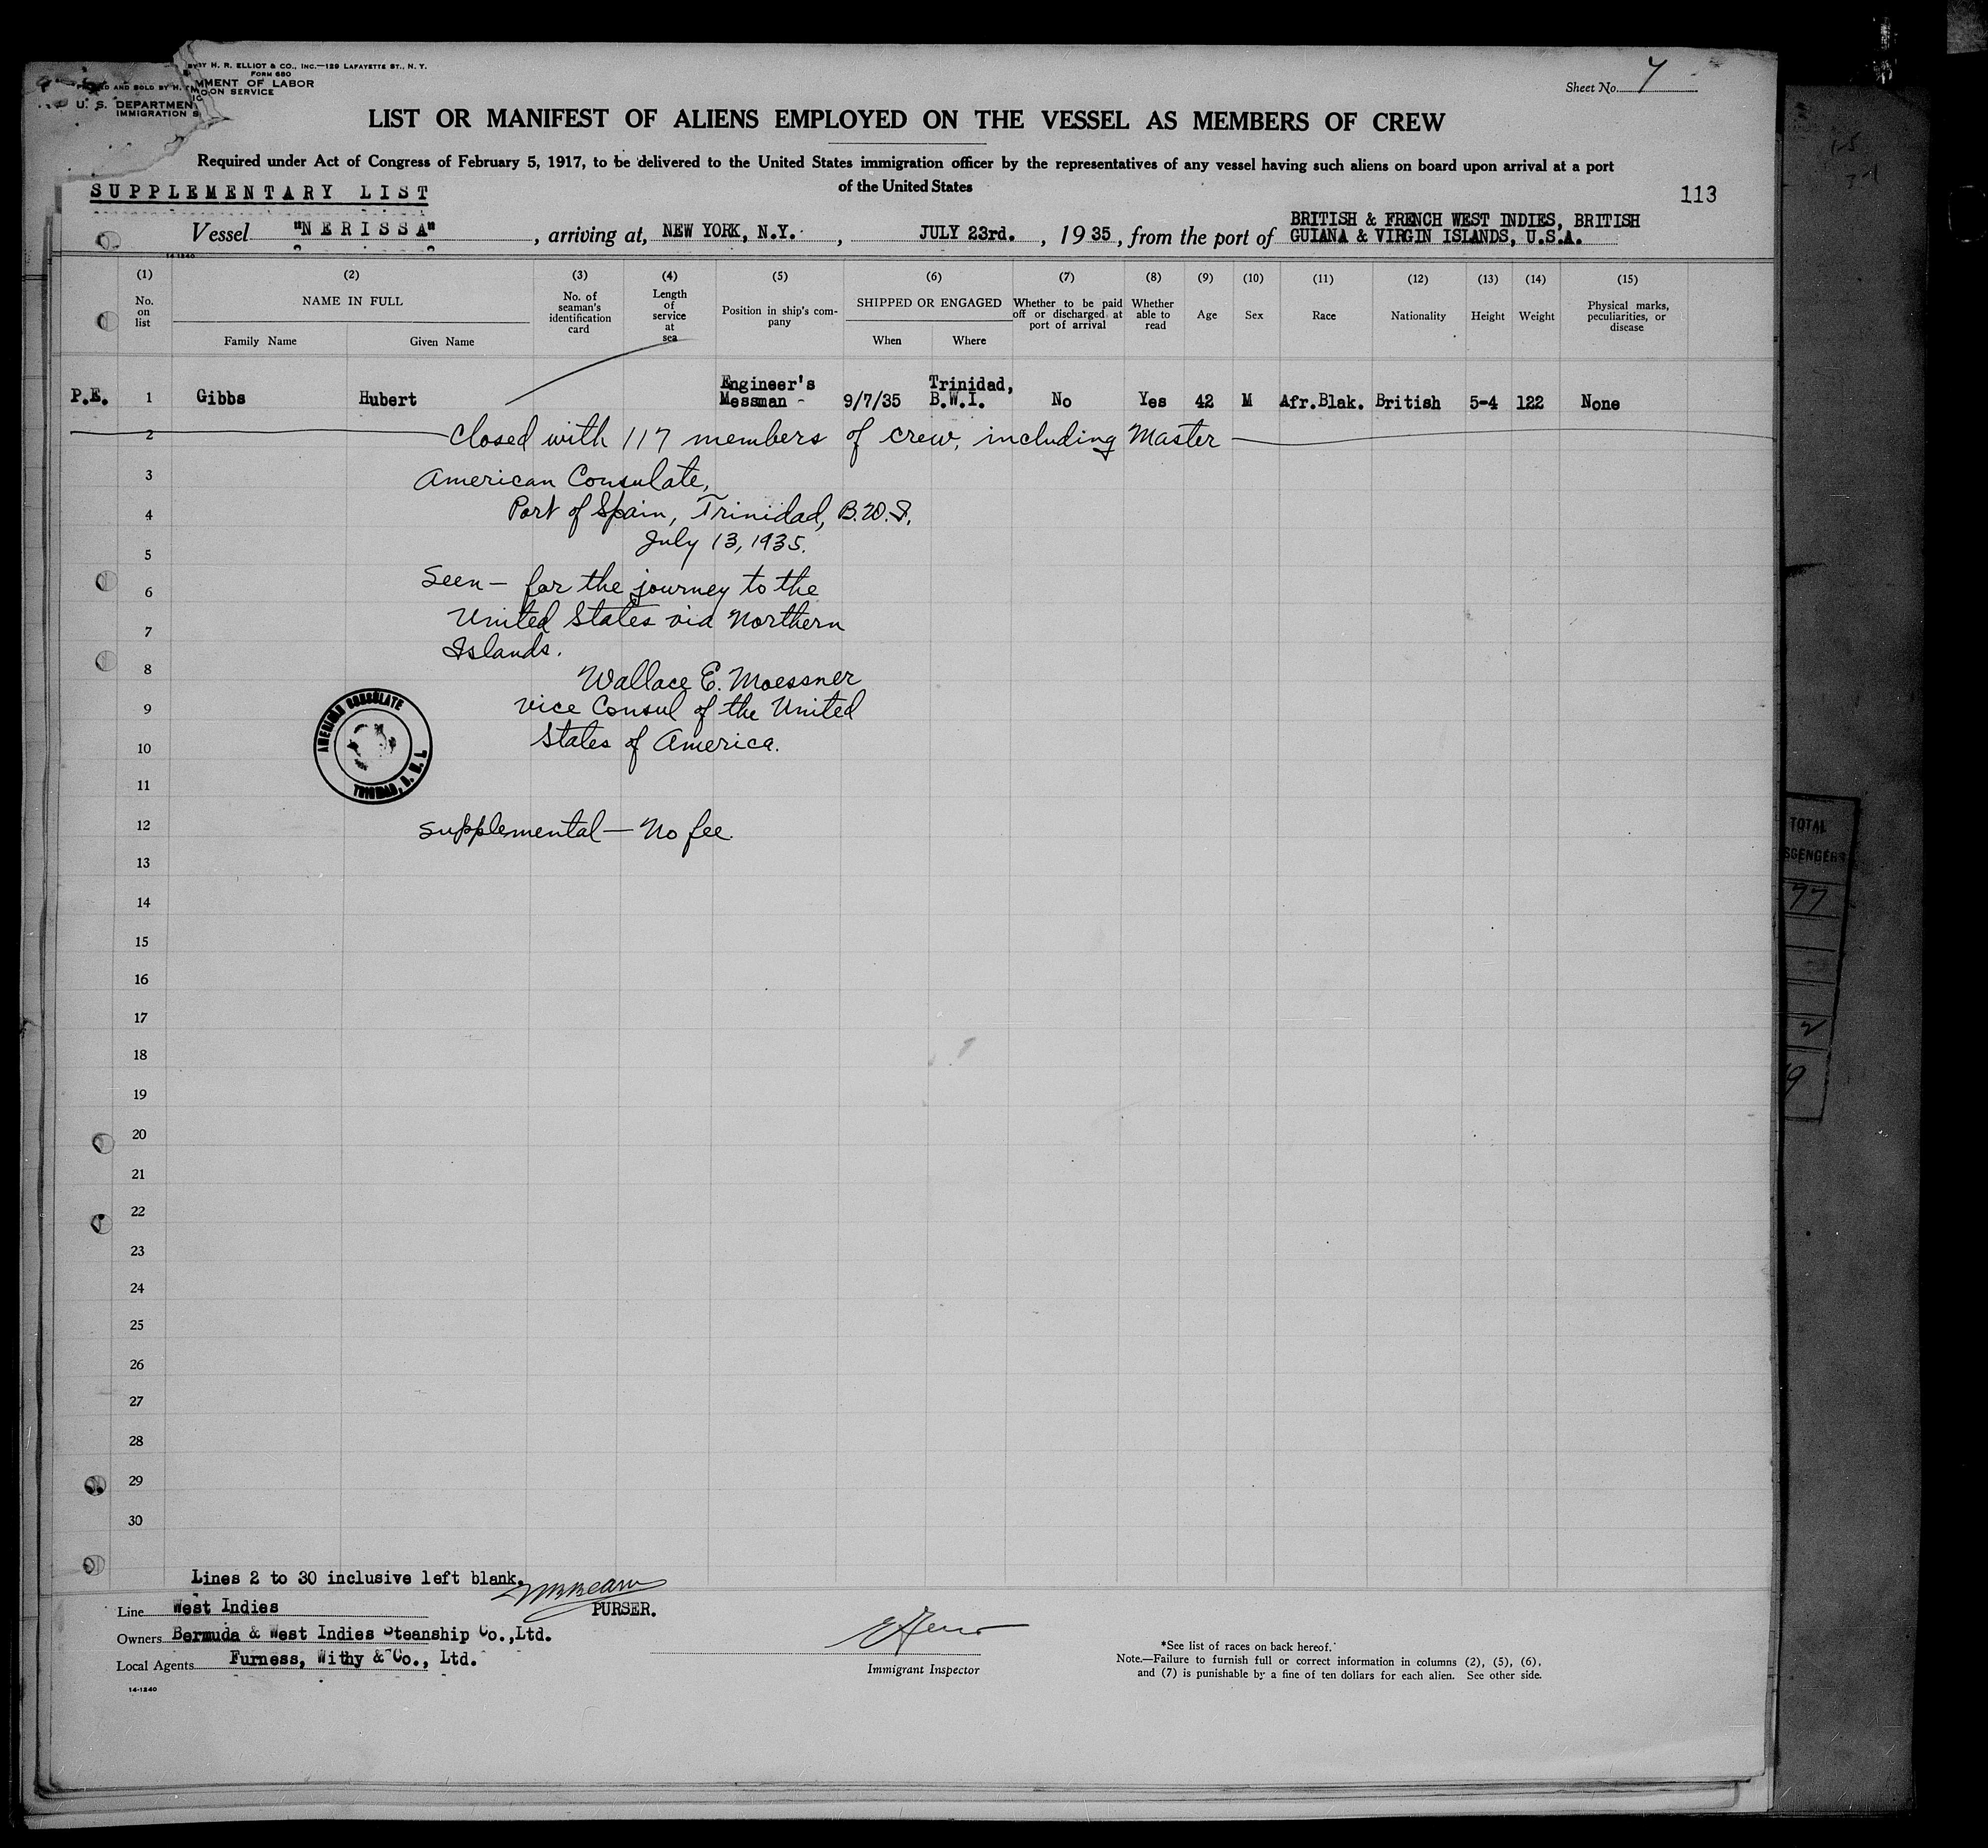 BY H. R. ELLIOT & CO., INC.—129 LAFAYETTE ST., N. Y.
FORM 680
MENT OF LABOR
ON SERVICE
AND SOLD BY H.
U. S. DEPARTMEN
IMMIGRATION S
Sheet No. 7
LIST OR MANIFEST OF ALIENS EMPLOYED ON THE VESSEL AS MEMBERS OF CREW
Required under Act of Congress of February 5, 1917, to be delivered to the United States immigration officer by the representatives of any vessel having such aliens on board upon arrival at a port
of the United States
SUPPLEMENTARY LIST
113
Vessel "NERISSA", arriving at, NEW YORK, N.Y., JULY 23rd., 1935, from the port of BRITISH & FRENCH WEST INDIES, BRITISH
GUIANA & VIRGIN ISLANDS, U.S.A.
14-1240
(1) (2) (3) (4) (5) (6) (7) (8) (9) (10) (11) (12) (13) (14) (15)
No. on list
NAME IN FULL
Family Name
Given Name
No. of seaman's identification card
Length of service at sea
Position in ship's com-
pany
SHIPPED OR ENGAGED
When
Where
Whether to be paid off or discharged at port of arrival
Whether able to read
Age
Sex
Race
Nationality
Height
Weight
Physical marks, peculiarities, or disease
P.E. 1 Gibbs Hubert Engineer's Messman - 9/7/35 Trinidad, B.W.I. No Yes 42 M Afr.Blak. British 5-4 122 None
2 Closed with 117 members of crew, including Master
3 American Consulate,
4 Port of Spain, Trinidad, B.W.I.
5 July 13, 1935.
6 Seen — for the journey to the
7 United States via Northern
Islands.
8 Wallace E. Moessner
9 Vice Consul of the United
10 States of America.
AMERICAN CONSULATE
TRINIDAD, B. W. I.
11
12 Supplemental — No fee.
13
14
15
16
17
18
19
20
21
22
23
24
25
26
27
28
29
30
Lines 2 to 30 inclusive left blank.
PURSER.
Line West Indies
Owners Bermuda & West Indies Steamship Co.,Ltd.
Local Agents Furness, Withy & Co., Ltd.
14-1240
Immigrant Inspector
*See list of races on back hereof.
Note.—Failure to furnish full or correct information in columns (2), (5), (6),
and (7) is punishable by a fine of ten dollars for each alien. See other side.
TOTAL
SENGERS
77
2
9